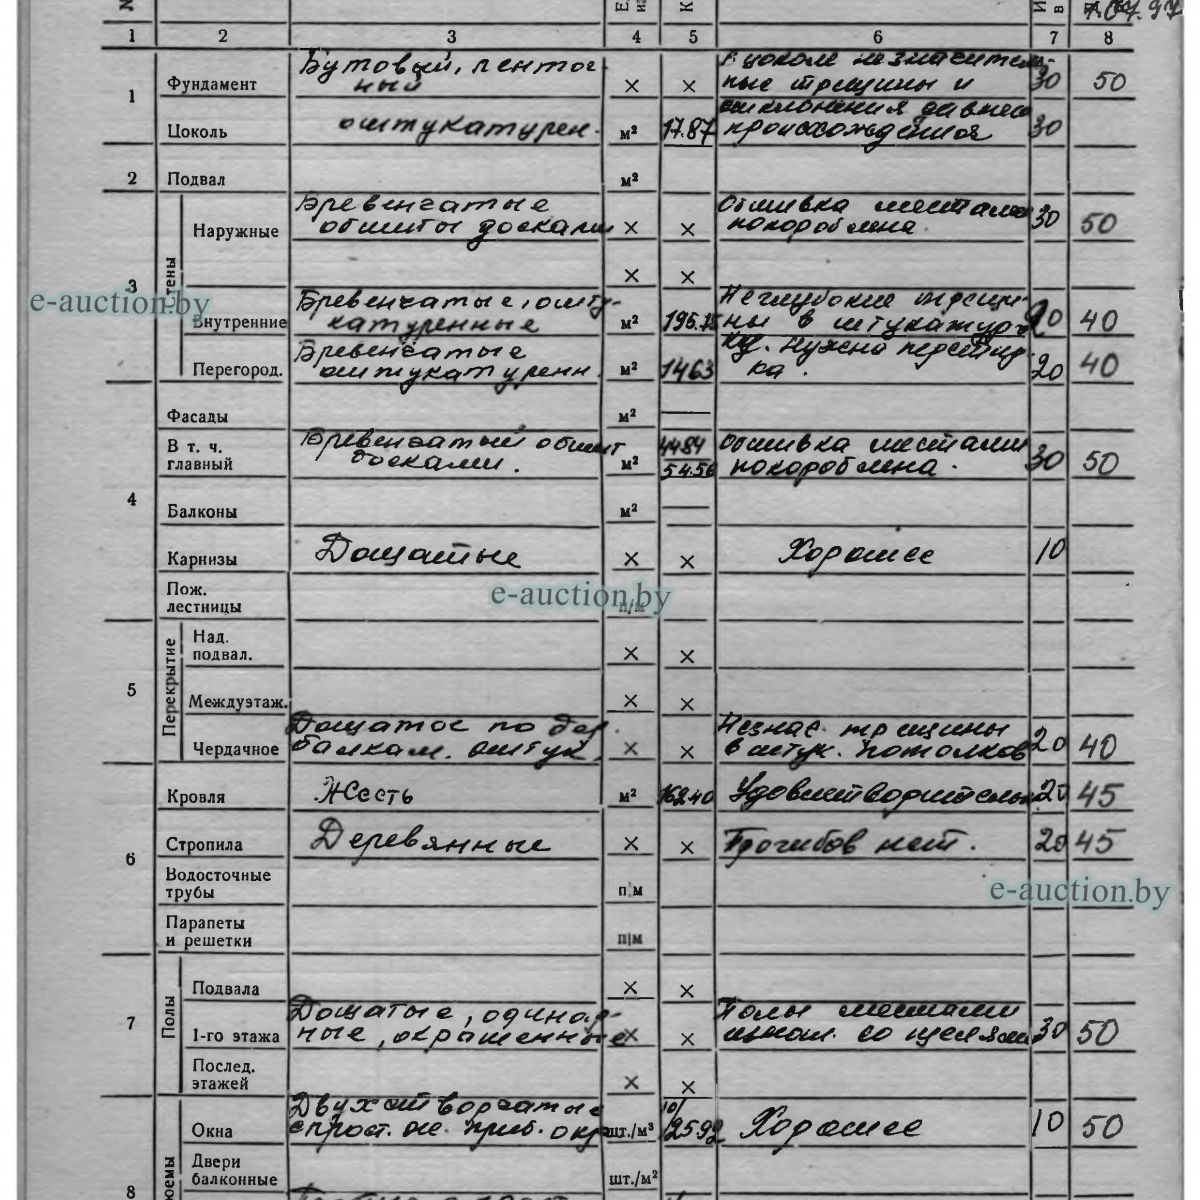 7.07.97
1 2 3 4 5 6 7 8
1 Фундамент Бутовый, ленточ-
ный × × В цоколе незначитель-
ные трещины и 30 50
отклонения давнего
Цоколь оштукатурен. м² 17.87 происхождения 30
2 Подвал м²
3 Стены
Наружные Бревенчатые
обшиты досками × × Обшивка местами
покороблена. 30 50
× ×
Внутренние Бревенчатые, ошту-
катуренные м² Неглубокие трещи-
ны в 20 40
Перегород. Бревенчатые
оштукатуренн. м² 1463 Нужна перетир-
ка. 20 40
4 Фасады м² —
В т. ч.
главный Бревенчатый обшит
досками. м² 4484
54.56 Обшивка местами
покороблена. 30 50
Балконы м² —
Карнизы Дощатые × × Хорошее 10
Пож.
лестницы п/м
5 Перекрытие
Над.
подвал. × ×
Междуэтаж. × ×
Чердачное Дощатое по дер.
балкам. оштук. × × Незнач. трещины
в штук. потолков 20 40
6 Кровля Жесть м² 16240 Удовлетворительн. 20 45
Стропила Деревянные × × Прогибов нет. 20 45
Водосточные
трубы п/м
Парапеты
и решетки п/м
7 Полы
Подвала × ×
1-го этажа Дощатые, одинар-
ные, окрашенные × × Полы местами
со щелями 30 50
Послед.
этажей × ×
8
Окна Двухстворчатые
шт./м² 10/
25.92 Хорошее 10 50
Двери
балконные шт./м²
e-auction.by
e-auction.by
e-auction.by